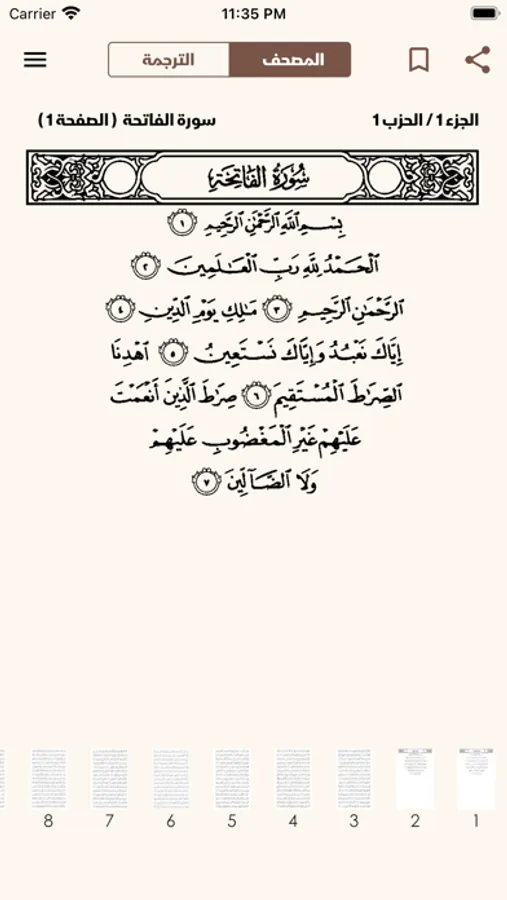 Carrier 11:35 PM
المصحف الترجمة
الجزء 1 / الحزب 1 سورة الفاتحة (الصفحة 1)
سُورَةُ الفَاتِحَةِ
بِسْمِ ٱللَّهِ ٱلرَّحْمَٰنِ ٱلرَّحِيمِ ١
ٱلْحَمْدُ لِلَّهِ رَبِّ ٱلْعَٰلَمِينَ ٢
ٱلرَّحْمَٰنِ ٱلرَّحِيمِ ٣ مَٰلِكِ يَوْمِ ٱلدِّينِ ٤
إِيَّاكَ نَعْبُدُ وَإِيَّاكَ نَسْتَعِينُ ٥ ٱهْدِنَا
ٱلصِّرَٰطَ ٱلْمُسْتَقِيمَ ٦ صِرَٰطَ ٱلَّذِينَ أَنْعَمْتَ
عَلَيْهِمْ غَيْرِ ٱلْمَغْضُوبِ عَلَيْهِمْ
وَلَا ٱلضَّآلِّينَ ٧
8 7 6 5 4 3 2 1